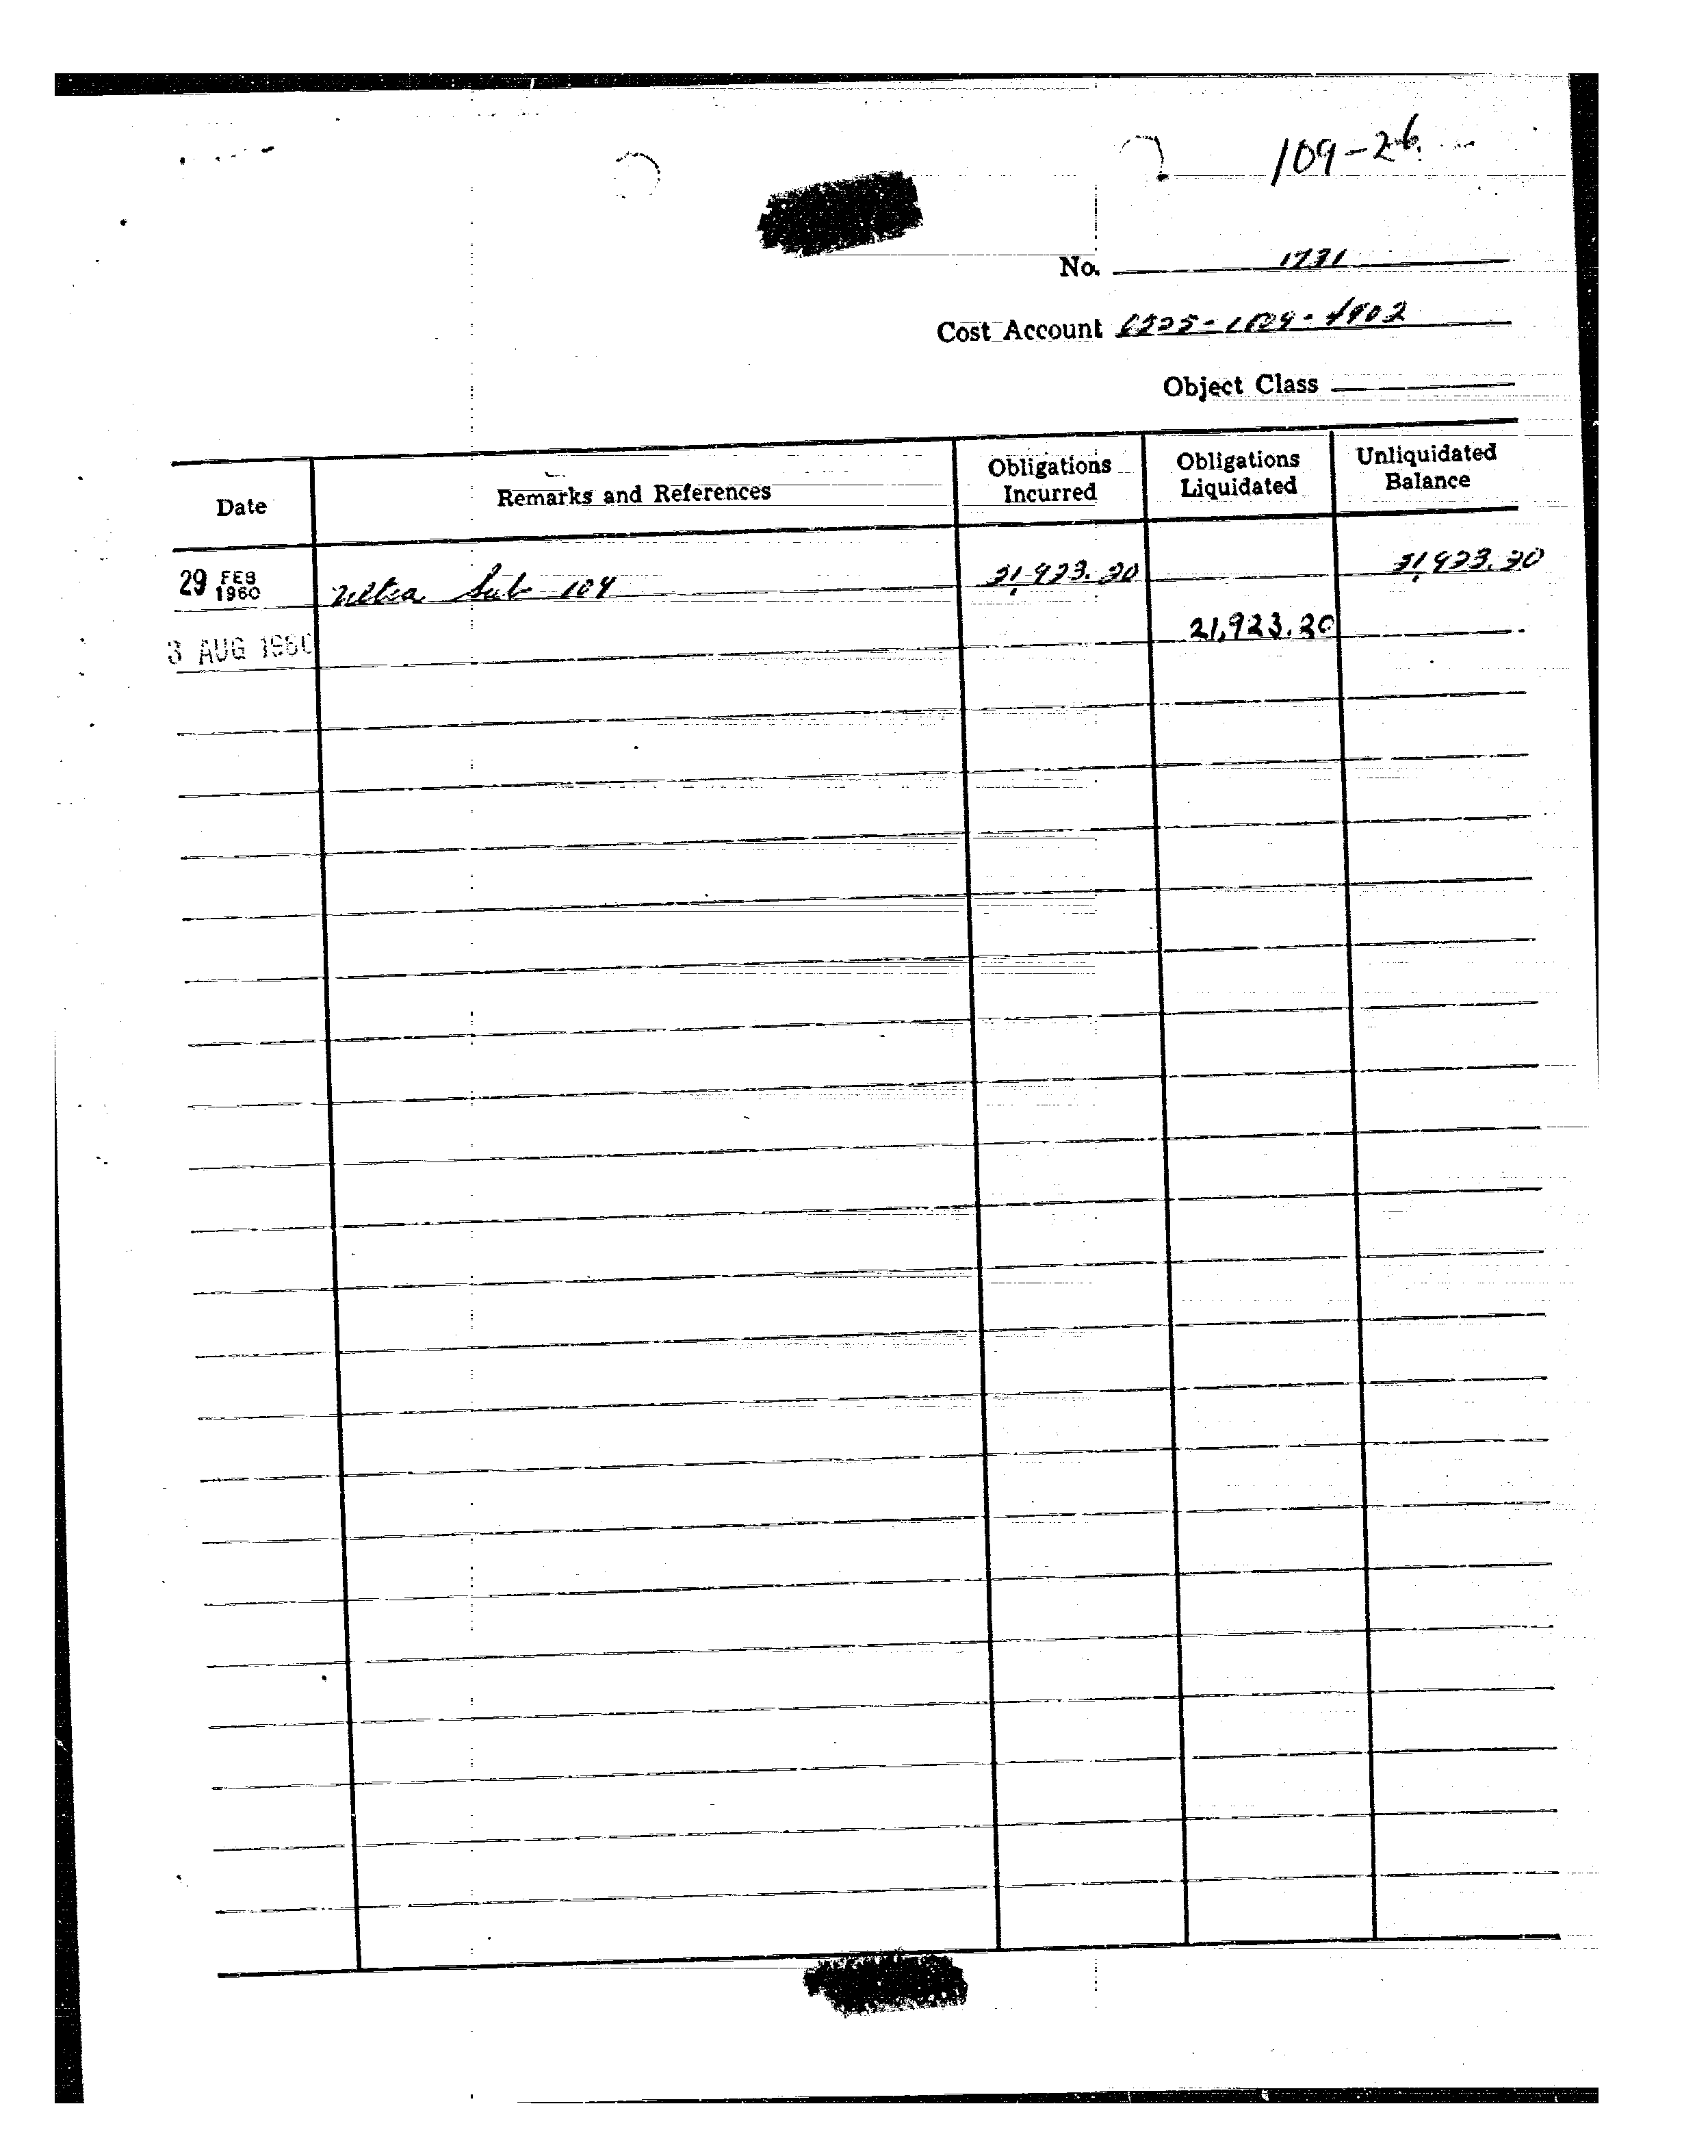 109-26
No. 1731
Cost Account
Object Class
Date Remarks and References Obligations Incurred Obligations Liquidated Unliquidated Balance
29 FEB 1960 Sub 109 21,923.20 21,923.20
3 AUG 1960 21,923.20